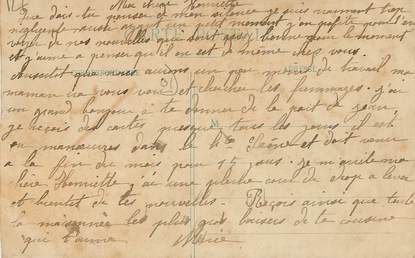 Ma chère Henriette
Que dois-tu penser de mon silence je suis vraiment bien
négligente aussi ayant un petit moment j'en profite pour t'en
voyer de nos nouvelles qui sont assez bonne pour le moment
et j'aime a penser qu'il en est de même chez vous.
Aussitôt que nous aurons un peu moins de travail ma
maman ira vous voir et chercher les fromages. j'ai
un grand bonjour à te donner de la part de
je reçois des cartes presque tous les jours il est
en manœuvres dans la Hte Saône et doit venir
a la fin du mois pour 15 jours. je m'arrête ma
chère Henriette j'ai une pleine cour de draps a laver
et bientôt de tes nouvelles. Reçois ainsi que toute
la maisonnée les plus gros baisers de ta cousine
qui t'aime